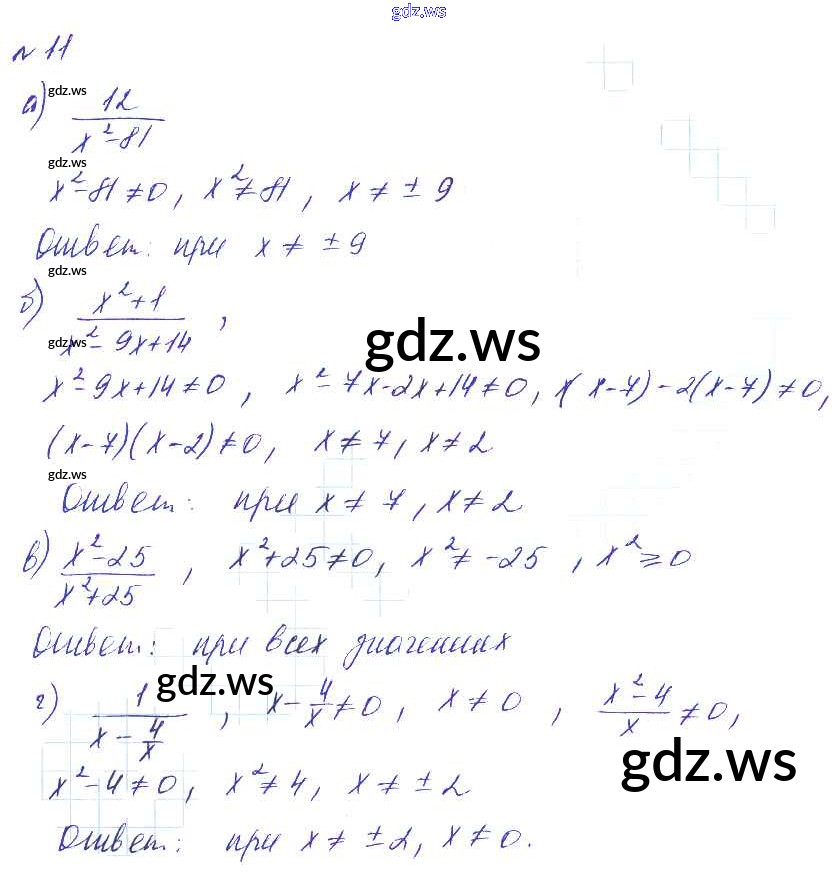 gdz.ws
№ 11
gdz.ws
а) 12/(x²-81)
gdz.ws
x²-81≠0, x²≠81, x ≠ ± 9
Ответ: при x ≠ ± 9
gdz.ws
б) (x²+1)/(x²-9x+14),
gdz.ws
gdz.ws
x²-9x+14≠0, x²-7x-2x+14≠0, x(x-7)-2(x-7)≠0,
(x-7)(x-2)≠0, x≠7, x≠2
gdz.ws
Ответ: при x≠7, x≠2
в) (x²-25)/(x²+25), x²+25≠0, x²≠-25, x²≥0
Ответ: при всех значениях
gdz.ws
г) 1/(x-4/x), x-4/x≠0, x≠0, (x²-4)/x≠0,
gdz.ws
x²-4≠0, x²≠4, x≠±2
Ответ: при x≠±2, x≠0.